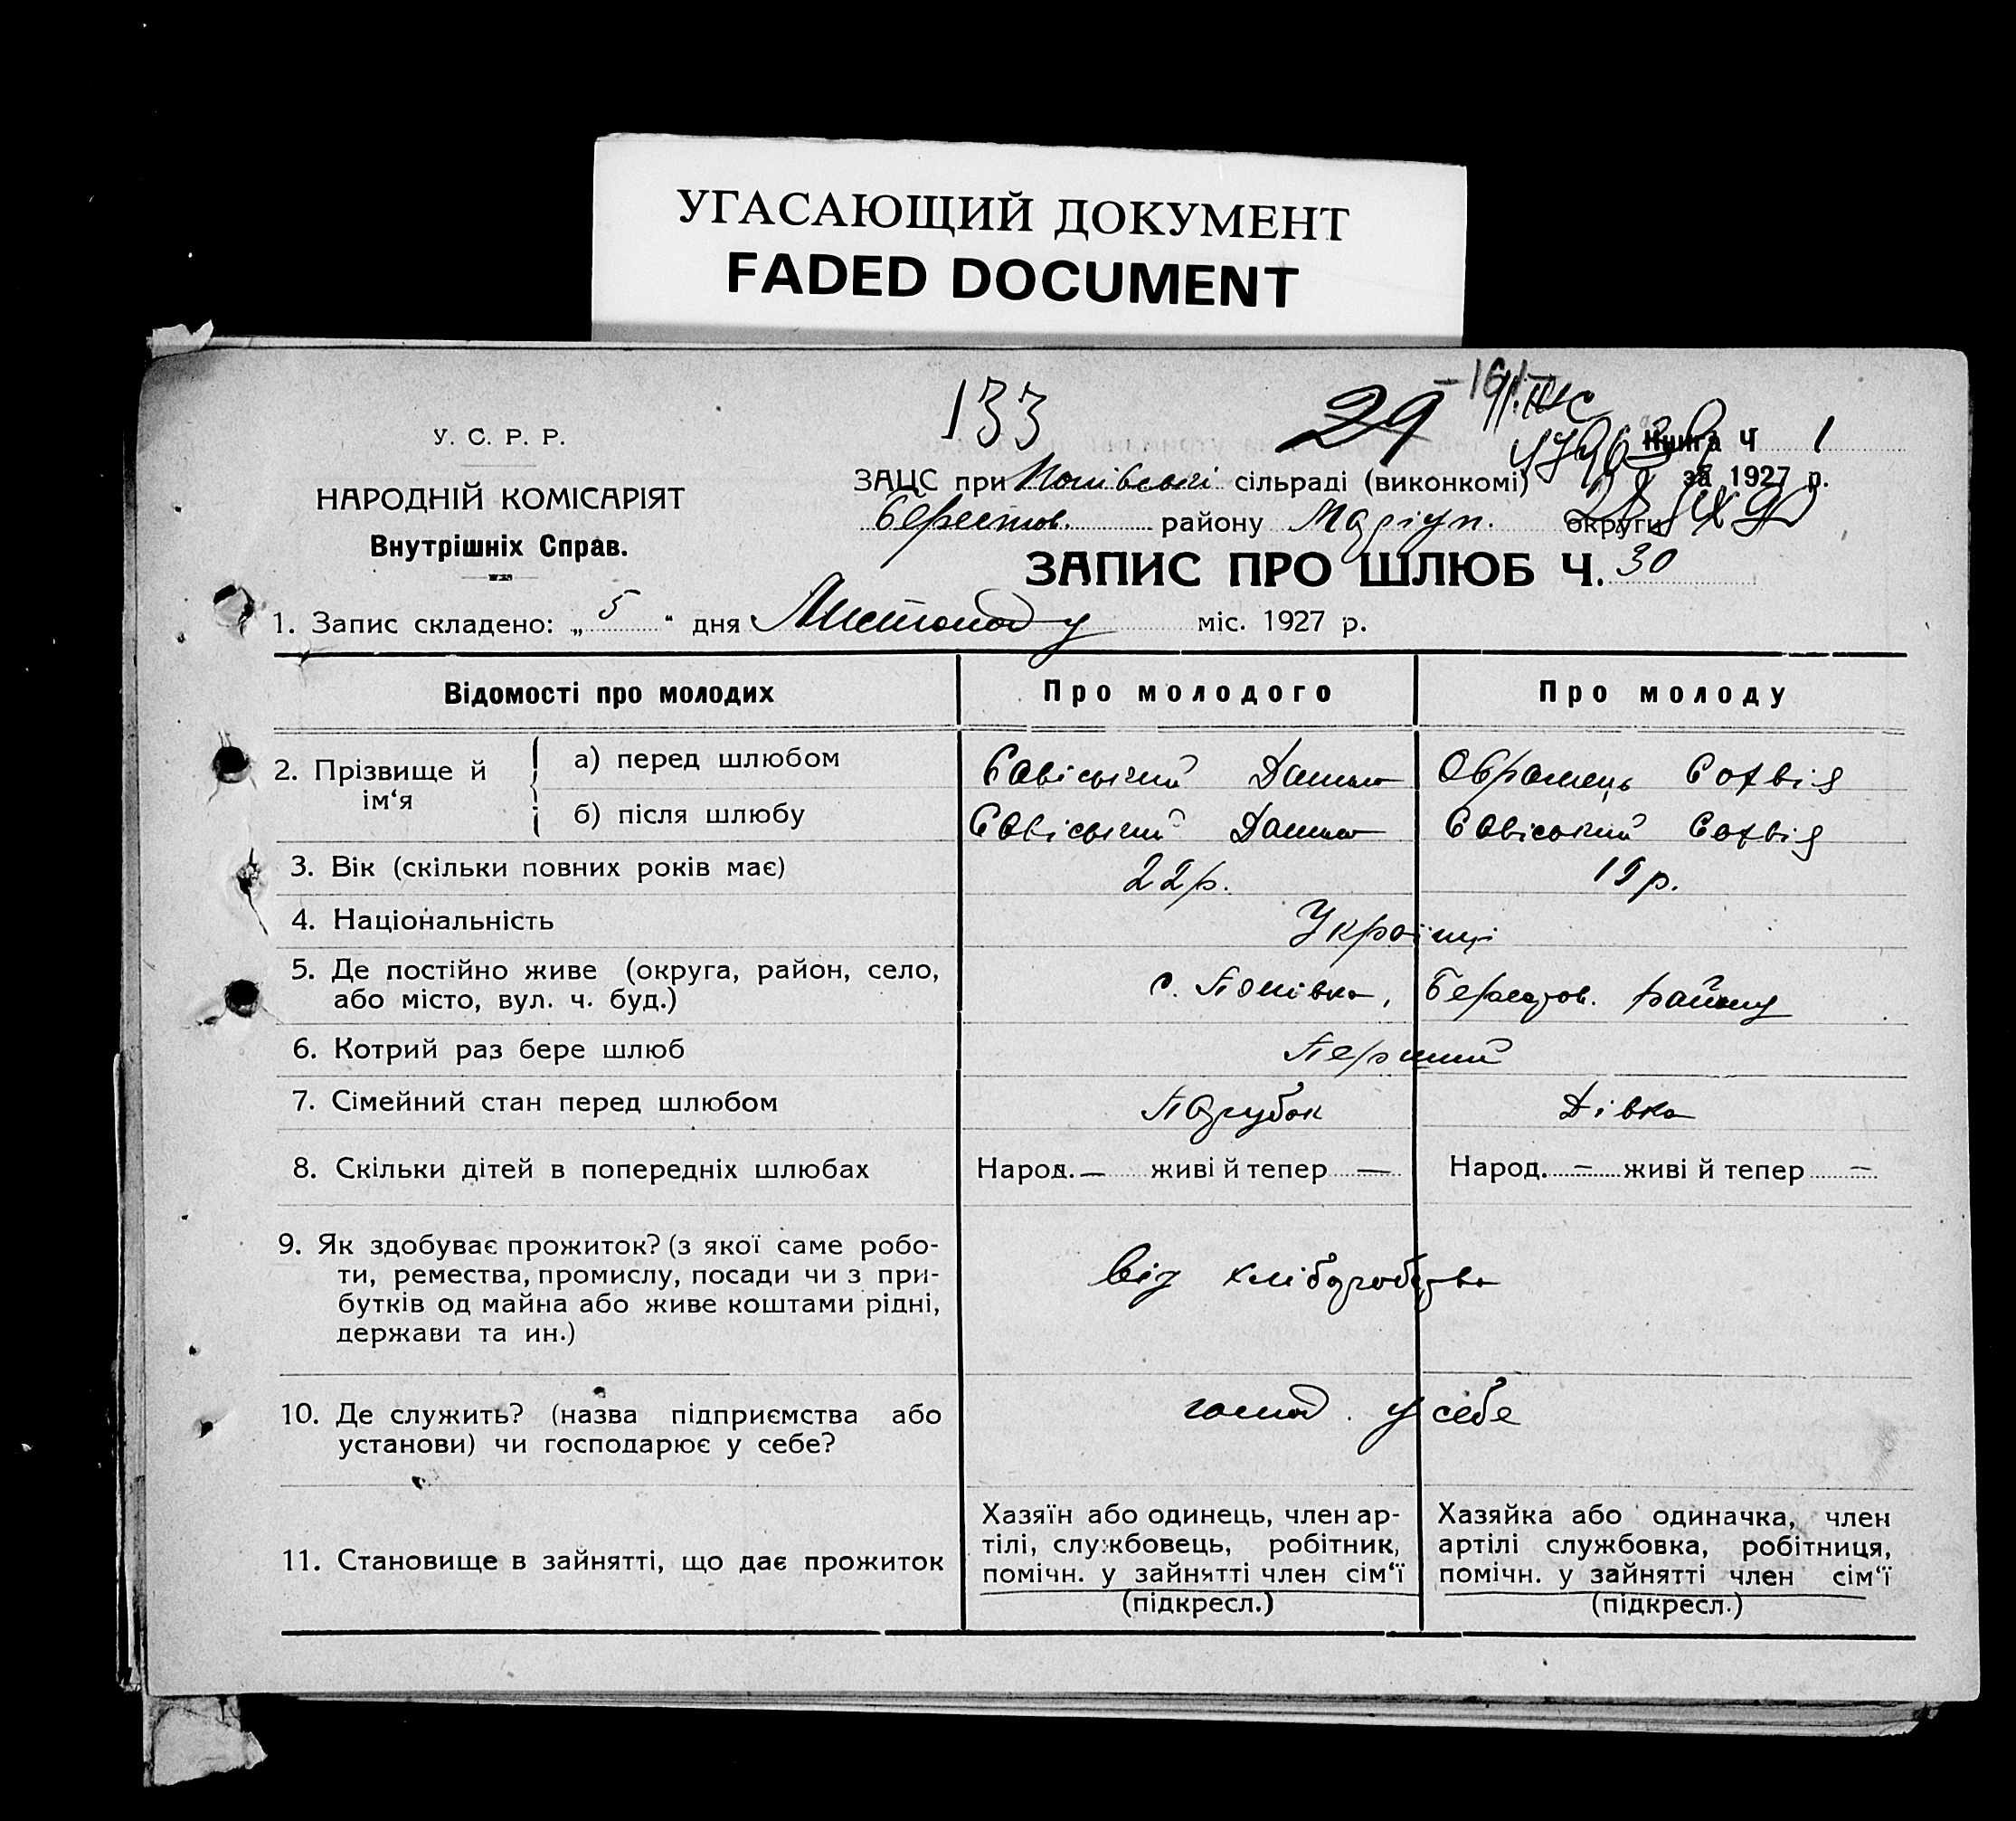 УГАСАЮЩИЙ ДОКУМЕНТ
FADED DOCUMENT
133
29
У. С. Р. Р.
Книга Ч 1
НАРОДНІЙ КОМІСАРІЯТ
ЗАЦС при сільраді (виконкомі) за 1927 р.
Внутрішніх Справ.
Берестов. району Маріуп. округи
ЗАПИС ПРО ШЛЮБ Ч. 30
1. Запис складено: „ 5 " дня Листопаду міс. 1927 р.
Відомості про молодих
Про молодого
Про молоду
2. Прізвище й ім'я
а) перед шлюбом
Савіський Данило
Образець Софвія
б) після шлюбу
Савіський Данило
Савіський Софвія
3. Вік (скільки повних років має)
22 р.
19 р.
4. Національність
Українці
5. Де постійно живе (округа, район, село,
або місто, вул. ч. буд.)
с. Попівка, Берестов. району
6. Котрий раз бере шлюб
Перший
7. Сімейний стан перед шлюбом
Парубок
Дівка
8. Скільки дітей в попередніх шлюбах
Народ. — живі й тепер —
Народ. — живі й тепер —
9. Як здобуває прожиток? (з якої саме робо-
ти, ремества, промислу, посади чи з при-
бутків од майна або живе коштами рідні,
держави та ин.)
Від хліборобства
10. Де служить? (назва підприємства або
установи) чи господарює у себе?
госпд. у себе
11. Становище в зайнятті, що дає прожиток
Хазяїн або одинець, член ар-
тілі, службовець, робітник,
помічн. у зайнятті член сім'ї
(підкресл.)
Хазяйка або одиначка, член
артілі службовка, робітниця,
помічн. у зайнятті член сім'ї
(підкресл.)